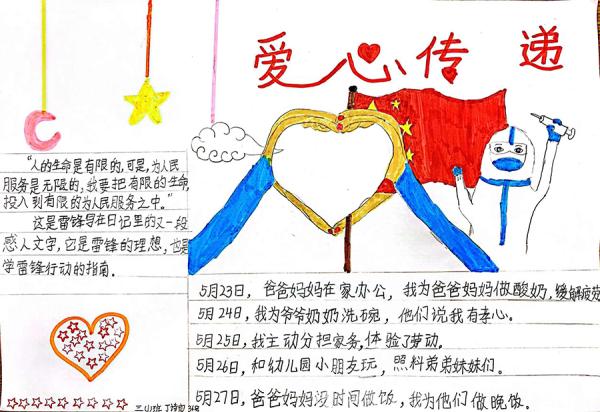 爱心传递
"人的生命是有限的,可是,为人民
服务是无限的,我要把有限的生命,
投入到有限的为人民服务之中。"
这是雷锋写在日记里的又一段
感人文字,它是雷锋的理想,也是
学雷锋行动的指南。
5月23日,爸爸妈妈在家办公,我为爸爸妈妈做酸奶,缓解疲劳
5月24日,我为爷爷奶奶洗碗,他们说我有孝心。
5月25日,我主动分担家务,体验了劳动。
5月26日,和幼儿园小朋友玩,照料弟弟妹妹们。
5月27日,爸爸妈妈没时间做饭,我为他们做晚饭。